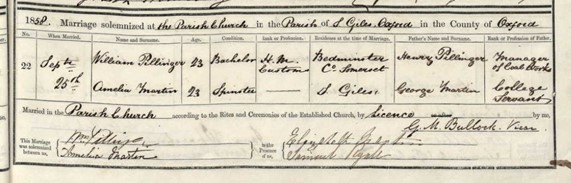 1858. Marriage solemnized at the Parish Church in the Parish of S. Giles Oxford in the County of Oxford
No. When Married. Name and Surname. Age. Condition. Rank or Profession. Residence at the time of Marriage. Father's Name and Surname. Rank or Profession of Father.
22 Septr William Pillinger 23 Bachelor H. M. Customs Bedminster Co. Somerset Henry Pillinger Manager of Coal Works
25th Amelia Martin 23 Spinster — S. Giles George Martin College Servant
Married in the Parish Church according to the Rites and Ceremonies of the Established Church, by Licence by me,
G. M. Bullock. Vicar
This Marriage was solemnized between us, Wm Pillinger Amelia Martin in the Presence of us, Elizabeth Samuel